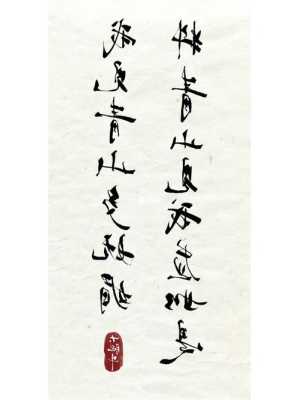 我見青山多妩媚
料青山見我应如是